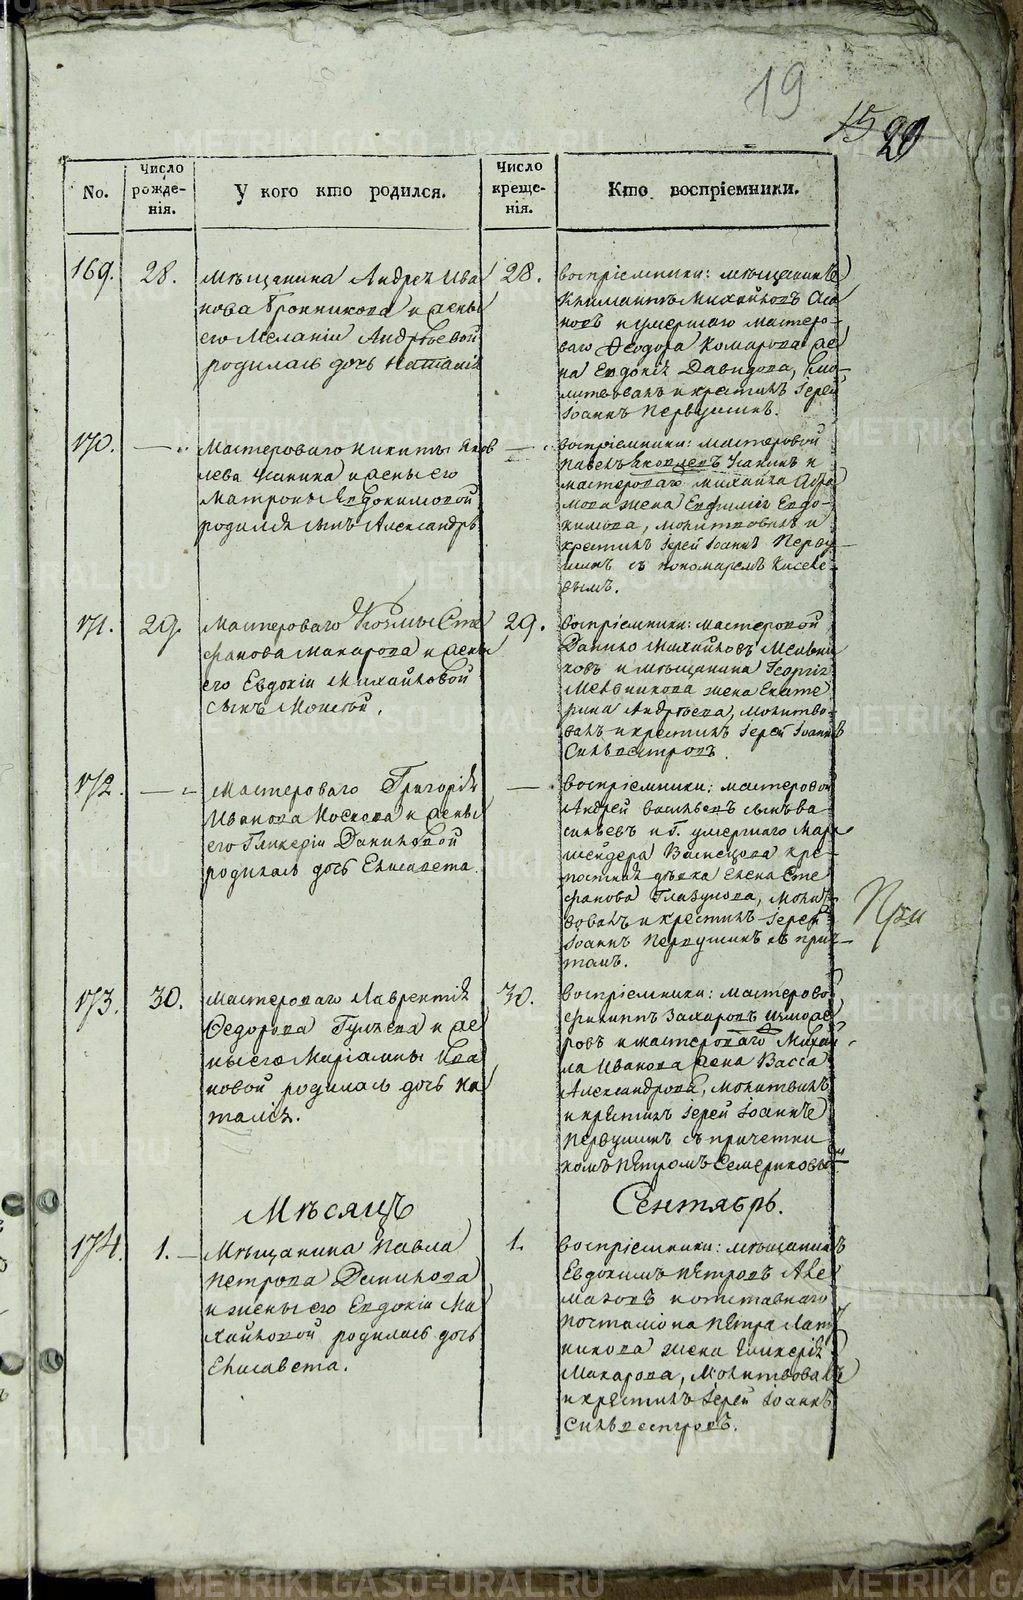 19
15 20
No.
Число рожде- нія.
У кого кто родился.
Число креще- нія.
Кто воспріемники.
169. 28.
мѣщанина Андрея Ива
нова Бронникова и жены
его Меланіи Андрѣевой
родилась дочь Наталія
28.
воспріемники: мѣщанинъ
Климантъ Михайловъ
новъ и умершаго мастеро-
ваго Ѳеодора Комарова же
на Евдокія Давидова,
литвовалъ и крестилъ Іерей
Іоаннъ Первушинъ.
170. — "
Мастероваго Никиты Яков
лева Усанина и жены его
Матроны Евдокимовой
родился сынъ Александръ
— "
воспріемники: мастеровой
Павелъ Яковлевъ Усанинъ и
мастероваго Михаила Абра
мова жена Евфимія Евдо-
кимова, молитвовалъ и
крестилъ Іерей Іоаннъ Перву-
шинъ съ пономаремъ Киселе-
вымъ.
171. 29.
Мастероваго Козмы Сте
фанова Макарова и жены
его Евдокіи Михайловой
сынъ Моисей.
29.
воспріемники: мастеровой
Данило Михайловъ Мельни
ковъ и мѣщанина Георгія
Мельникова жена Екате
рина Андрѣева, молитво-
валъ и крестилъ Іерей Іоаннъ
Сильвестровъ.
172. — "
Мастероваго Григорія
Иванова Носкова и жены
его Гликеріи Даниловой
родилась дочь Елисавета.
— "
воспріемники: мастеровой
Андрей Васильевъ сынъ Ва
сильевъ и Г. умершаго Марк
шейдера Васнецова кре-
постная дѣвка Елена Сте
фанова Глазунова, молит
вовалъ и крестилъ Іерей
Іоаннъ Первушинъ съ прич-
томъ.
При
173. 30.
мастероваго Лаврентія
Ѳедорова Гуляева и же
ны его Маріамны Ива
новой родилась дочь На
талія.
30.
воспріемники: мастеровой
Филиппъ Захаровъ
ровъ и мастероваго Михай
ла Иванова жена Васса
Александрова, молитвилъ
и крестилъ Іерей Іоаннъ
Первушинъ съ причетни
комъ Петромъ Семериковы
мъ
Мѣсяцъ Сентябрь.
174. 1.
Мѣщанина Павла
Петрова Демидова
и жены его Евдокіи Ми
хайловой родилась дочь
Елисавета.
1.
воспріемники: мѣщанинъ
Евдокимъ Петровъ Але
мазовъ и отставнаго
почталіона Петра Лат
никова жена Гликерія
Макарова, Молитвовалъ
и крестилъ Іерей Іоаннъ
Сильвестровъ.